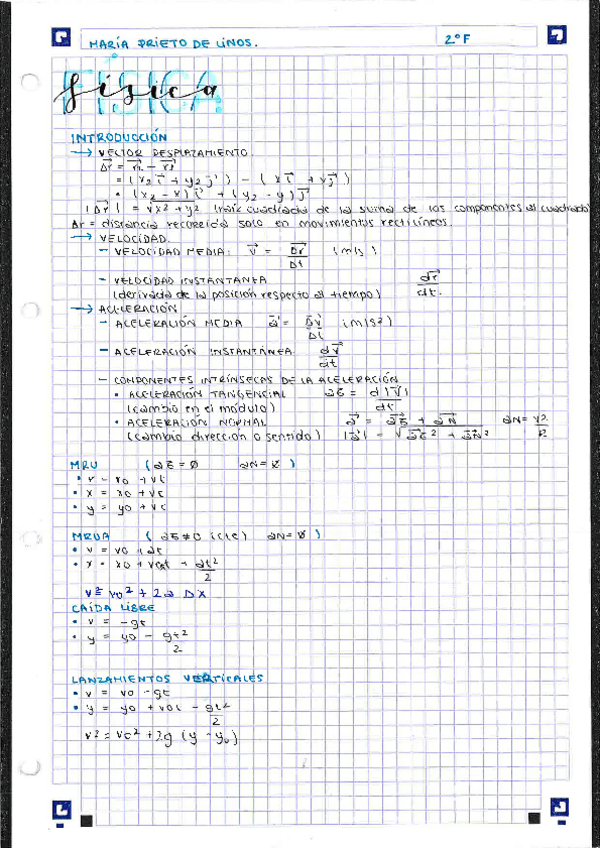 MARÍA PRIETO DE LINOS. 2ºF
física
INTRODUCCIÓN
→ VECTOR DESPLAZAMIENTO.
Δr⃗ = r⃗₂ - r⃗₁
= (x₂ i⃗ + y₂ j⃗) - (x i⃗ + y j⃗)
• (x₂ - x) i⃗ + (y₂ - y) j⃗
|Δr⃗| = √x² + y² (raíz cuadrada de la suma de los componentes al cuadrado)
Δr = distancia recorrida solo en movimientos rectilíneos.
→ VELOCIDAD.
- VELOCIDAD MEDIA: v⃗ = Δr⃗/Δt (m/s)
- VELOCIDAD INSTANTANEA dr⃗/dt.
(derivada de la posición respecto al tiempo)
→ ACELERACIÓN
- ACELERACIÓN MEDIA a⃗ = Δv⃗/Δt (m/s²)
- ACELERACIÓN INSTANTÁNEA dv⃗/dt
- COMPONENTES INTRÍNSECAS DE LA ACELERACIÓN
• ACELERACIÓN TANGENCIAL at = d|v⃗|/dt
(cambio en el módulo)
• ACELERACIÓN NORMAL a⃗ = a⃗t + a⃗N aN = v²/R
(cambio dirección o sentido) |a⃗| = √a⃗t² + a⃗N²
MRU (at = 0 aN = 0)
• r = r0 + vt
• x = x0 + vt
• y = y0 + vt
MRUA (at ≠ 0 (cte) aN = 0)
• v = v0 + at
• x = x0 + v0t + at²/2
v² = v0² + 2a Δx
CAÍDA LIBRE
• v = -gt
• y = y0 - gt²/2
LANZAMIENTOS VERTICALES
• v = v0 - gt
• y = y0 + v0t - gt²/2
v² = v0² + 2g (y - y₀)